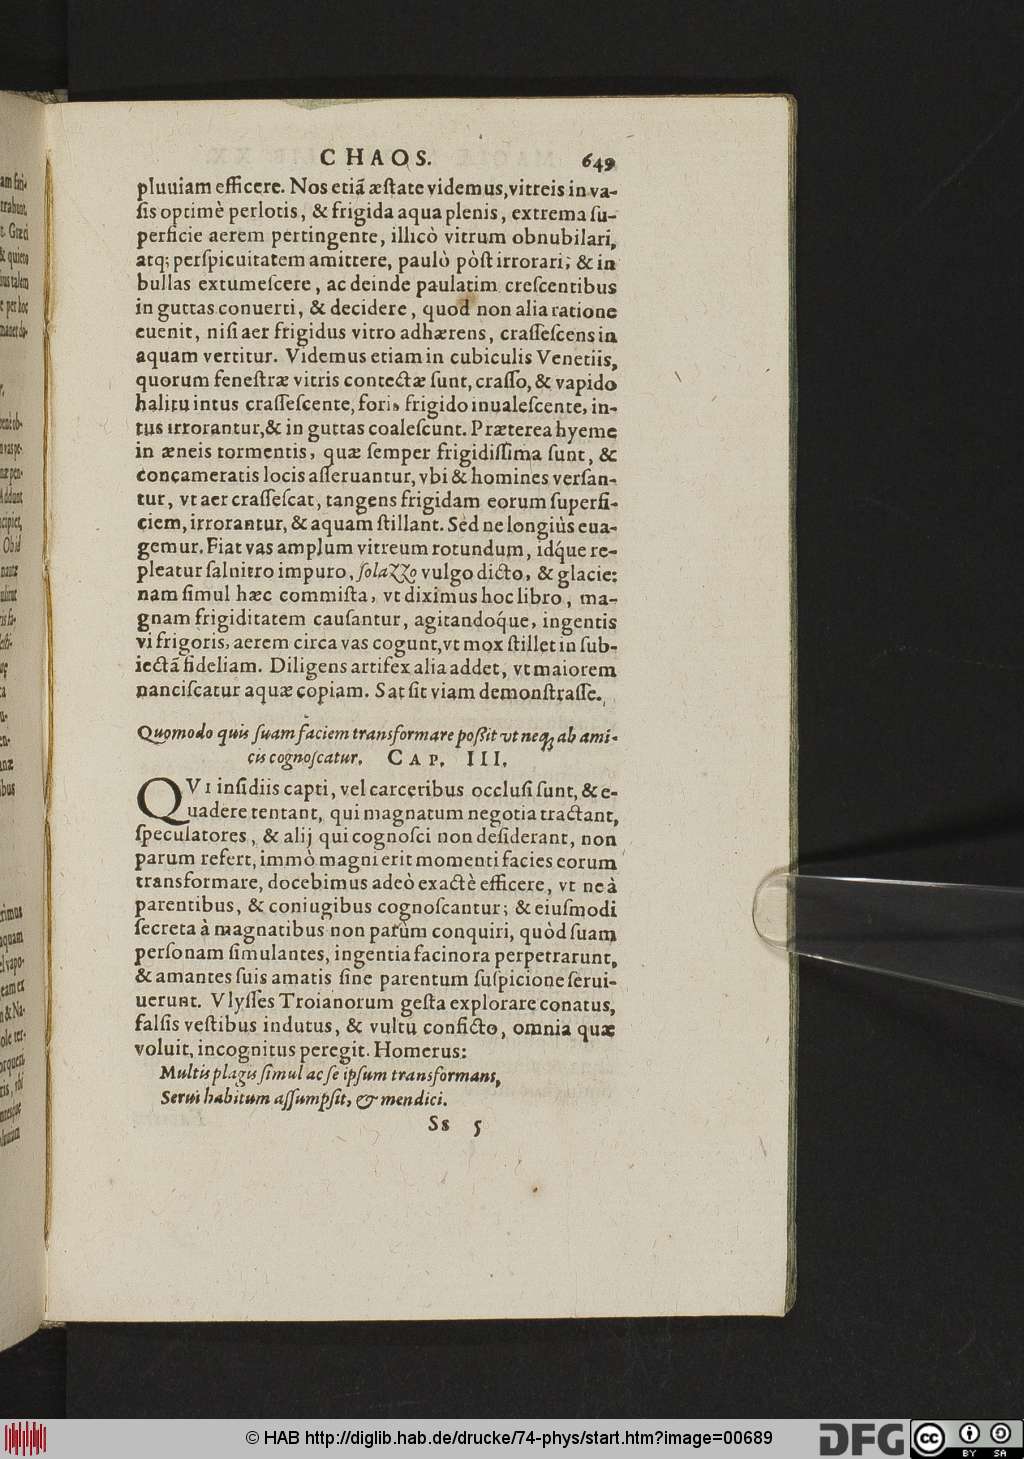 CHAOS. 649
pluuiam efficere. Nos etiã æstate videmus, vitreis in va-
sis optimè perlotis, & frigida aqua plenis, extrema su-
perficie aerem pertingente, illicò vitrum obnubilari,
atq; perspicuitatem amittere, paulò pòst irrorari; & in
bullas extumescere, ac deinde paulatim crescentibus
in guttas conuerti, & decidere, quod non alia ratione
euenit, nisi aer frigidus vitro adhærens, crassescens in
aquam vertitur. Videmus etiam in cubiculis Venetiis,
quorum fenestræ vitris contectæ sunt, crasso, & vapido
halitu intus crassescente, foris frigido inualescente, in-
tus irrorantur, & in guttas coalescunt. Præterea hyeme
in æneis tormentis, quæ semper frigidissima sunt, &
concameratis locis asseruantur, vbi & homines versan-
tur, vt aer crassescat, tangens frigidam eorum superfi-
ciem, irrorantur, & aquam stillant. Sed ne longiùs eua-
gemur. Fiat vas amplum vitreum rotundum, idq́ue re-
pleatur salnitro impuro, solazzo vulgo dicto, & glacie:
nam simul hæc commista, vt diximus hoc libro, ma-
gnam frigiditatem causantur, agitandoq́ue, ingentis
vi frigoris, aerem circa vas cogunt, vt mox stillet in sub-
iectã fideliam. Diligens artifex alia addet, vt maiorem
nanciscatur aquæ copiam. Sat sit viam demonstrasse.
Quomodo quis suam faciem transformare possit vt neq; ab ami-
cis cognoscatur. CAP. III.
QVI insidiis capti, vel carceribus occlusi sunt, & e-
uadere tentant, qui magnatum negotia tractant,
speculatores, & alij qui cognosci non desiderant, non
parum refert, immò magni erit momenti facies eorum
transformare, docebimus adeò exactè efficere, vt ne à
parentibus, & coniugibus cognoscantur; & eiusmodi
secreta à magnatibus non parùm conquiri, quòd suam
personam simulantes, ingentia facinora perpetrarunt,
& amantes suis amatis sine parentum suspicione serui-
uerunt. Vlysses Troianorum gesta explorare conatus,
falsis vestibus indutus, & vultu conficto, omnia quæ
voluit, incognitus peregit. Homerus:
Multis plagis simul ac se ipsum transformans,
Serui habitum assumpsit, & mendici.
Ss 5
© HAB http://diglib.hab.de/drucke/74-phys/start.htm?image=00689
DFG
cc BY SA